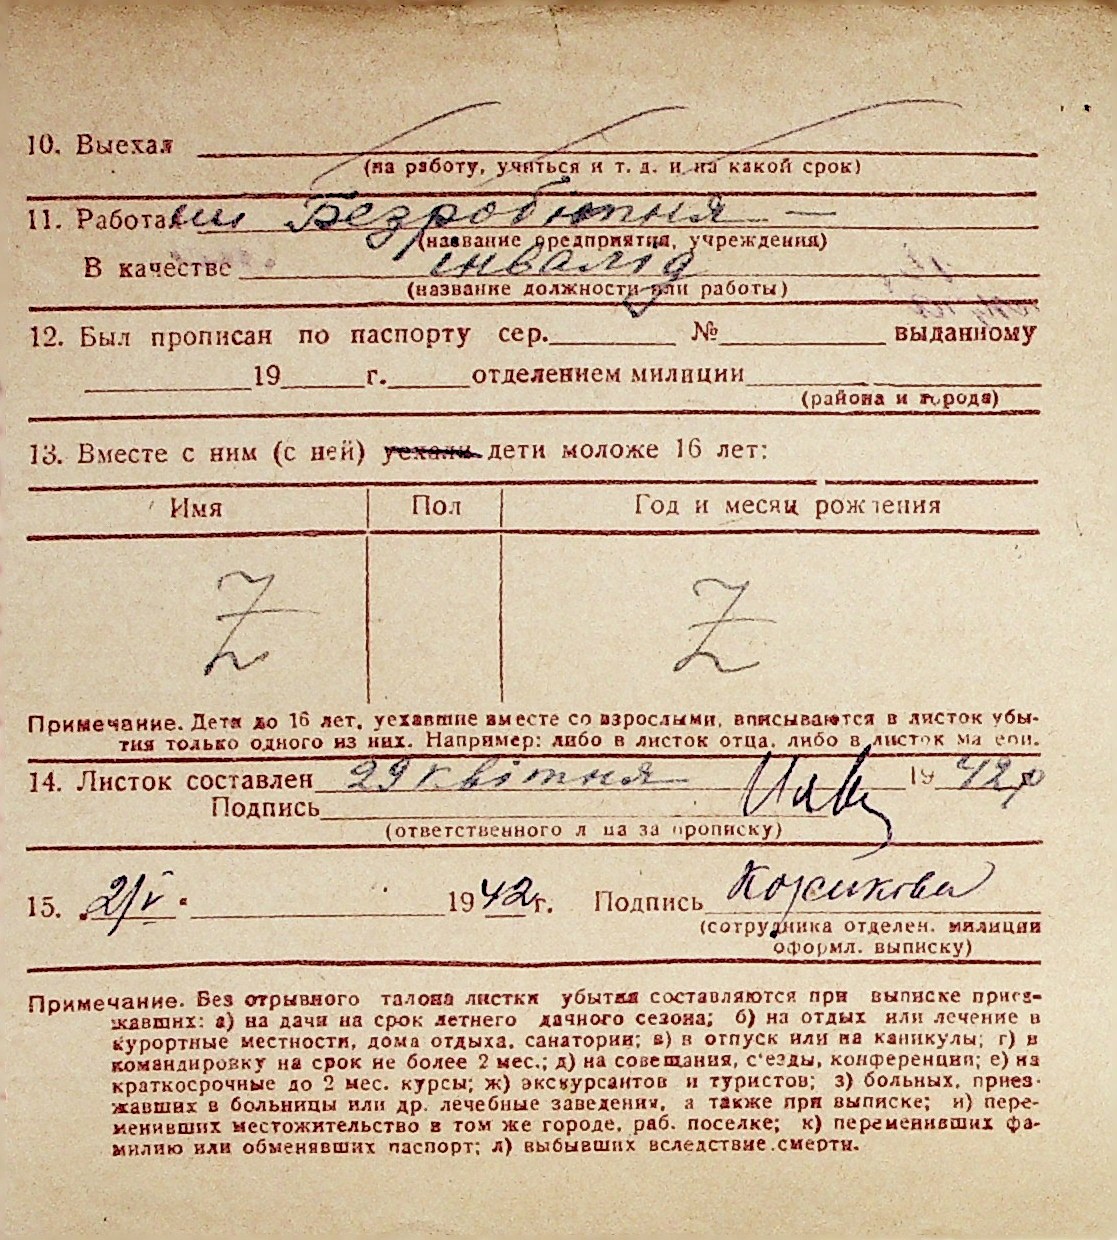 10. Выехал
(на работу, учиться и т. д. и на какой срок)
11. Работал Безробітня —
(название предприятия, учреждения)
В качестве інвалід
(название должности или работы)
12. Был прописан по паспорту сер. № выданному
19 г. отделением милиции
(района и города)
13. Вместе с ним (с ней) уехали дети моложе 16 лет:
Имя Пол Год и месяц рождения
Z Z
Примечание. Дети до 16 лет, уехавшие вместе со взрослыми, вписываются в листок убы-
тия только одного из них. Например: либо в листок отца, либо в листок матери.
14. Листок составлен 29 квітня 1942 р
Подпись
(ответственного лица за прописку)
15. 2/V 1942 г. Подпись
(сотрудника отделен. милиции
оформл. выписку)
Примечание. Без отрывного талона листки убытия составляются при выписке приез-
жавших: а) на дачи на срок летнего дачного сезона; б) на отдых или лечение в
курортные местности, дома отдыха, санатории; в) в отпуск или на каникулы; г) в
командировку на срок не более 2 мес.; д) на совещания, с'езды, конференции; е) на
краткосрочные до 2 мес. курсы; ж) экскурсантов и туристов; з) больных, приез-
жавших в больницы или др. лечебные заведения, а также при выписке; и) пере-
менивших местожительство в том же городе, раб. поселке; к) переменивших фа-
милию или обменявших паспорт; л) выбывших вследствие смерти.